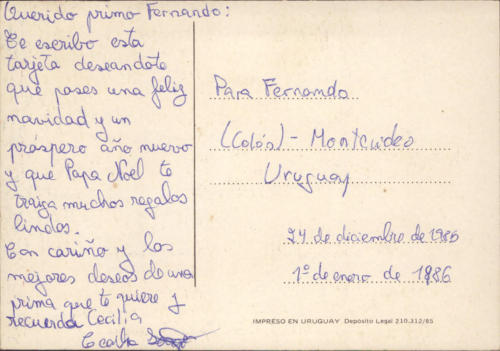 Querido primo Fernando:
Te escribo esta
tarjeta deseandote
que pases una feliz
navidad y un
próspero año nuevo
y que Papa Noel te
traiga muchos regalos
lindos.
Con cariño y los
mejores deseos de una
prima que te quiere y
recuerda Cecilia
Cecilia
Para Fernando
(Colón) - Montevideo
Uruguay
24 de diciembre de 1985
1º de enero de 1986
IMPRESO EN URUGUAY Depósito Legal 210.312/85